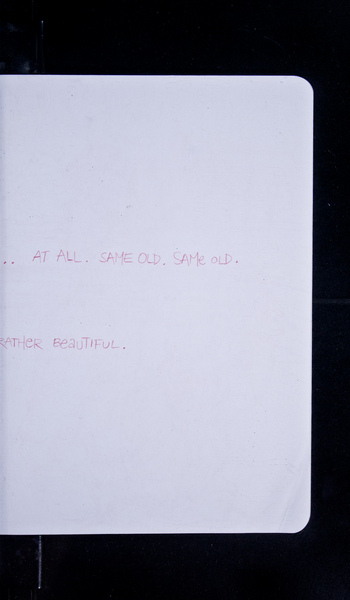 .. AT ALL. SAME OLD. SAMe OLD.
RATHeR BeaUTIFUL.